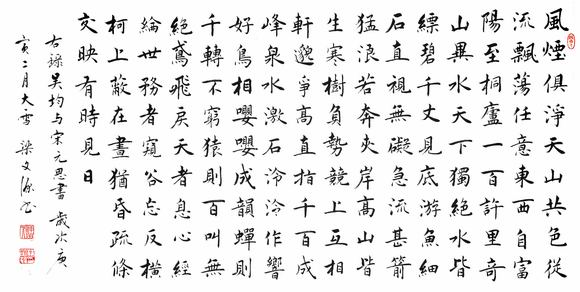 風煙俱淨天山共色從
流飄蕩任意東西自富
陽至桐廬一百許里奇
山異水天下獨絕水皆
縹碧千丈見底游魚細
石直視無礙急流甚箭
猛浪若奔夾岸高山皆
生寒樹負勢競上互相
軒邈爭高直指千百成
峰泉水激石泠泠作響
好鳥相嚶嚶成韻蟬則
千轉不窮猿則百叫無
絕鳶飛戾天者息心經
綸世務者窺谷忘反橫
柯上蔽在晝猶昏疏條
交映有時見日
右錄吳均与宋元思書 歲次庚
寅二月大雪 梁文